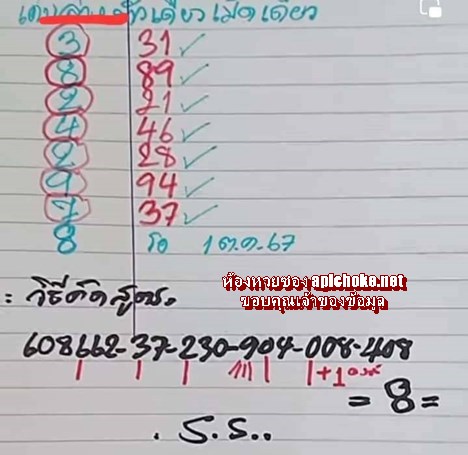 เด่นล่าง ตัวเดียวเม็ดเดียว
3 31 ✓
8 89 ✓
2 21 ✓
4 46 ✓
2 28 ✓
9 94 ✓
7 37 ✓
8 รอ 1 ต.ค.67
ห้องหวยซอง apichoke.net
ขอบคุณเจ้าของข้อมูล
: วิธีคิดสูตร.
608662-37-230-904-008-408
+1
=8=
. ร.ร..